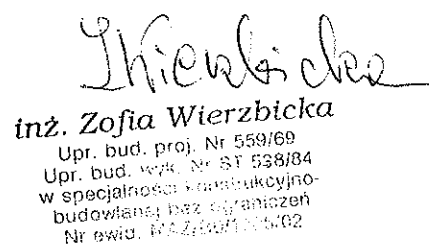 ZWierzbicka
inż. Zofia Wierzbicka
Upr. bud. proj. Nr 559/69
Upr. bud. wyk. Nr ST 538/84
w specjalności konstrukcyjno-
budowlanej bez ograniczeń
Nr ewid.